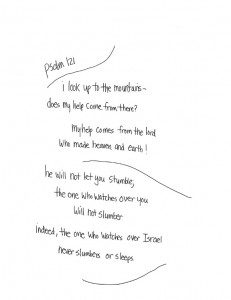 psalm 121
I look up to the mountains-
does my help come from there?
My help comes from the lord
Who made heaven and earth!
he will not let you stumble;
the one who watches over you
will not slumber
indeed, the one who watches over Israel
never slumbers or sleeps